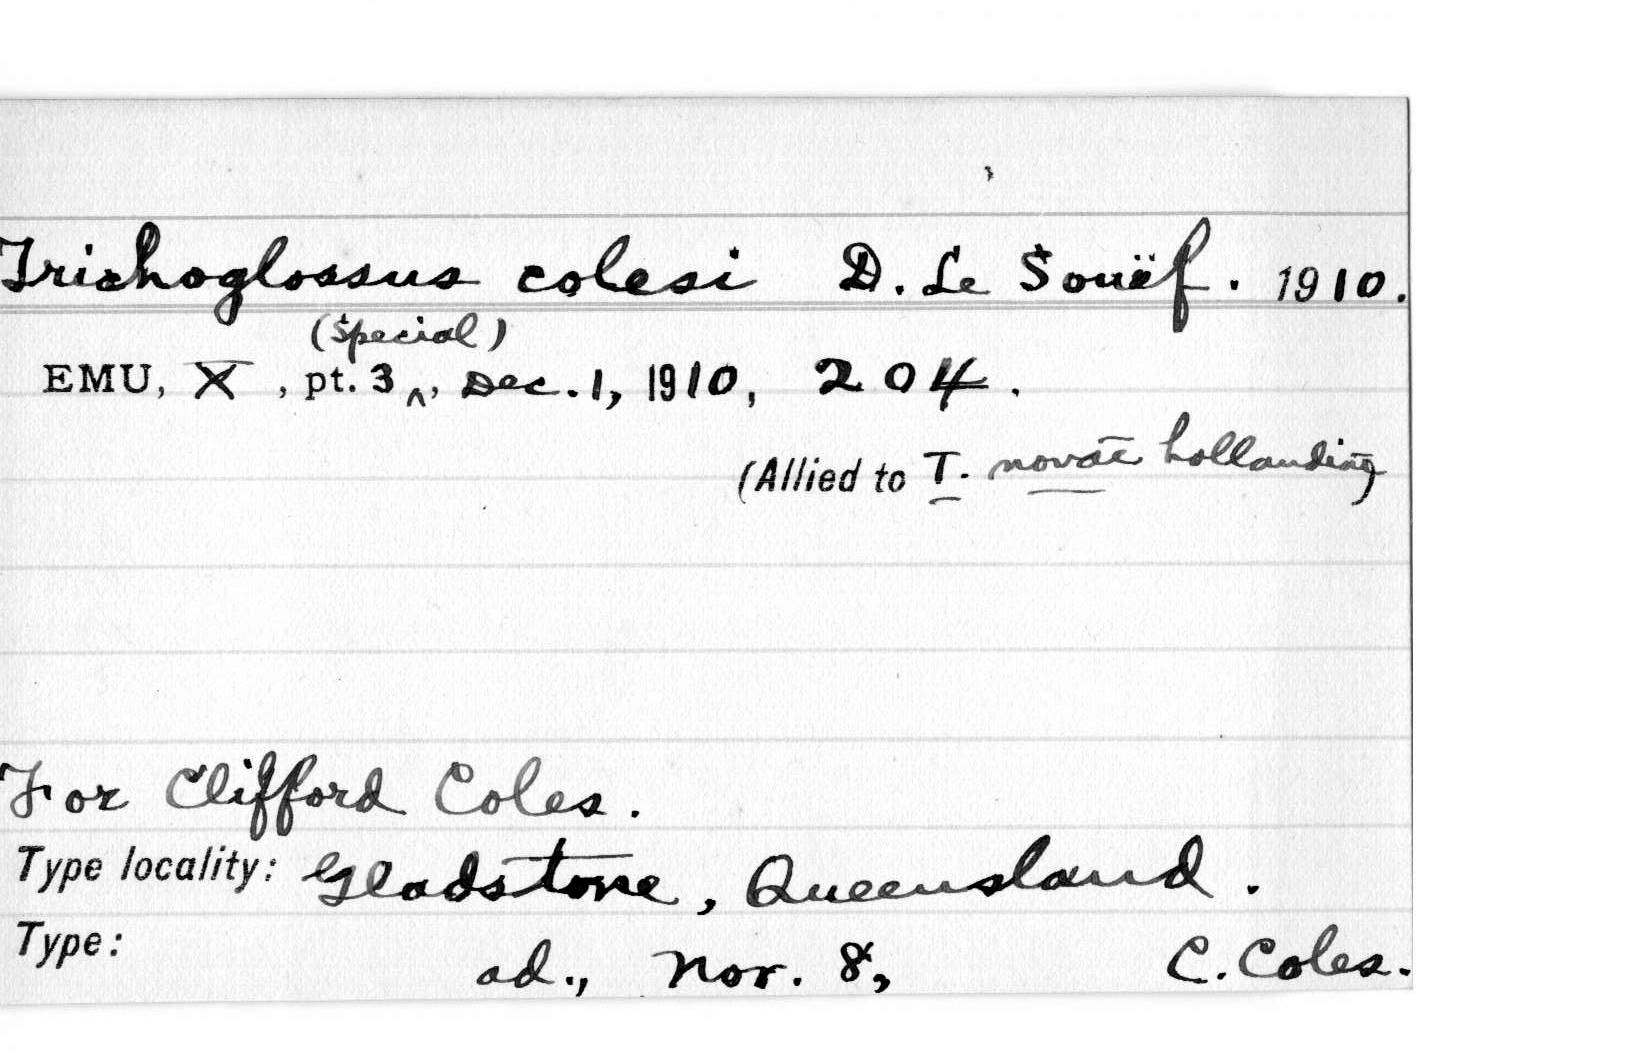 Trichoglossus colesi D. Le Souëf. 1910.
(Special)
EMU, X, pt. 3^, Dec. 1, 1910, 204.
(Allied to T. novae hollandiae)
For Clifford Coles.
Type locality: Gladstone, Queensland.
Type: ad., Nov. 8, C. Coles.